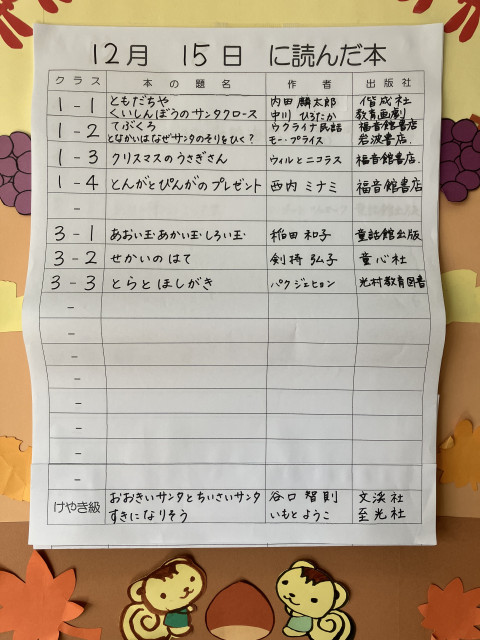 12月 15日 に読んだ本
クラス 本の題名 作者 出版社
1-1 ともだちや 内田 麟太郎 偕成社
くいしんぼうのサンタクロース 中川 ひろたか 教育画劇
1-2 てぶくろ ウクライナ民話 福音館書店
となかいはなぜサンタのそりをひく? モー・プライス 岩波書店.
1-3 クリスマスのうさぎさん ウィルとニコラス 福音館書店.
1-4 とんがとぴんがのプレゼント 西内 ミナミ 福音館書店
-
3-1 あおい玉・あかい玉・しろい玉・ 稲田 和子 童話館出版
3-2 せかいのはて 剣持 弘子 童心社
3-3 とらとほしがき パク ジェヒョン 光村教育図書
-
-
-
-
-
-
-
-
けやき級 おおきいサンタとちいさいサンタ 谷口 智則 文溪社
すきになりそう いもとようこ 至光社